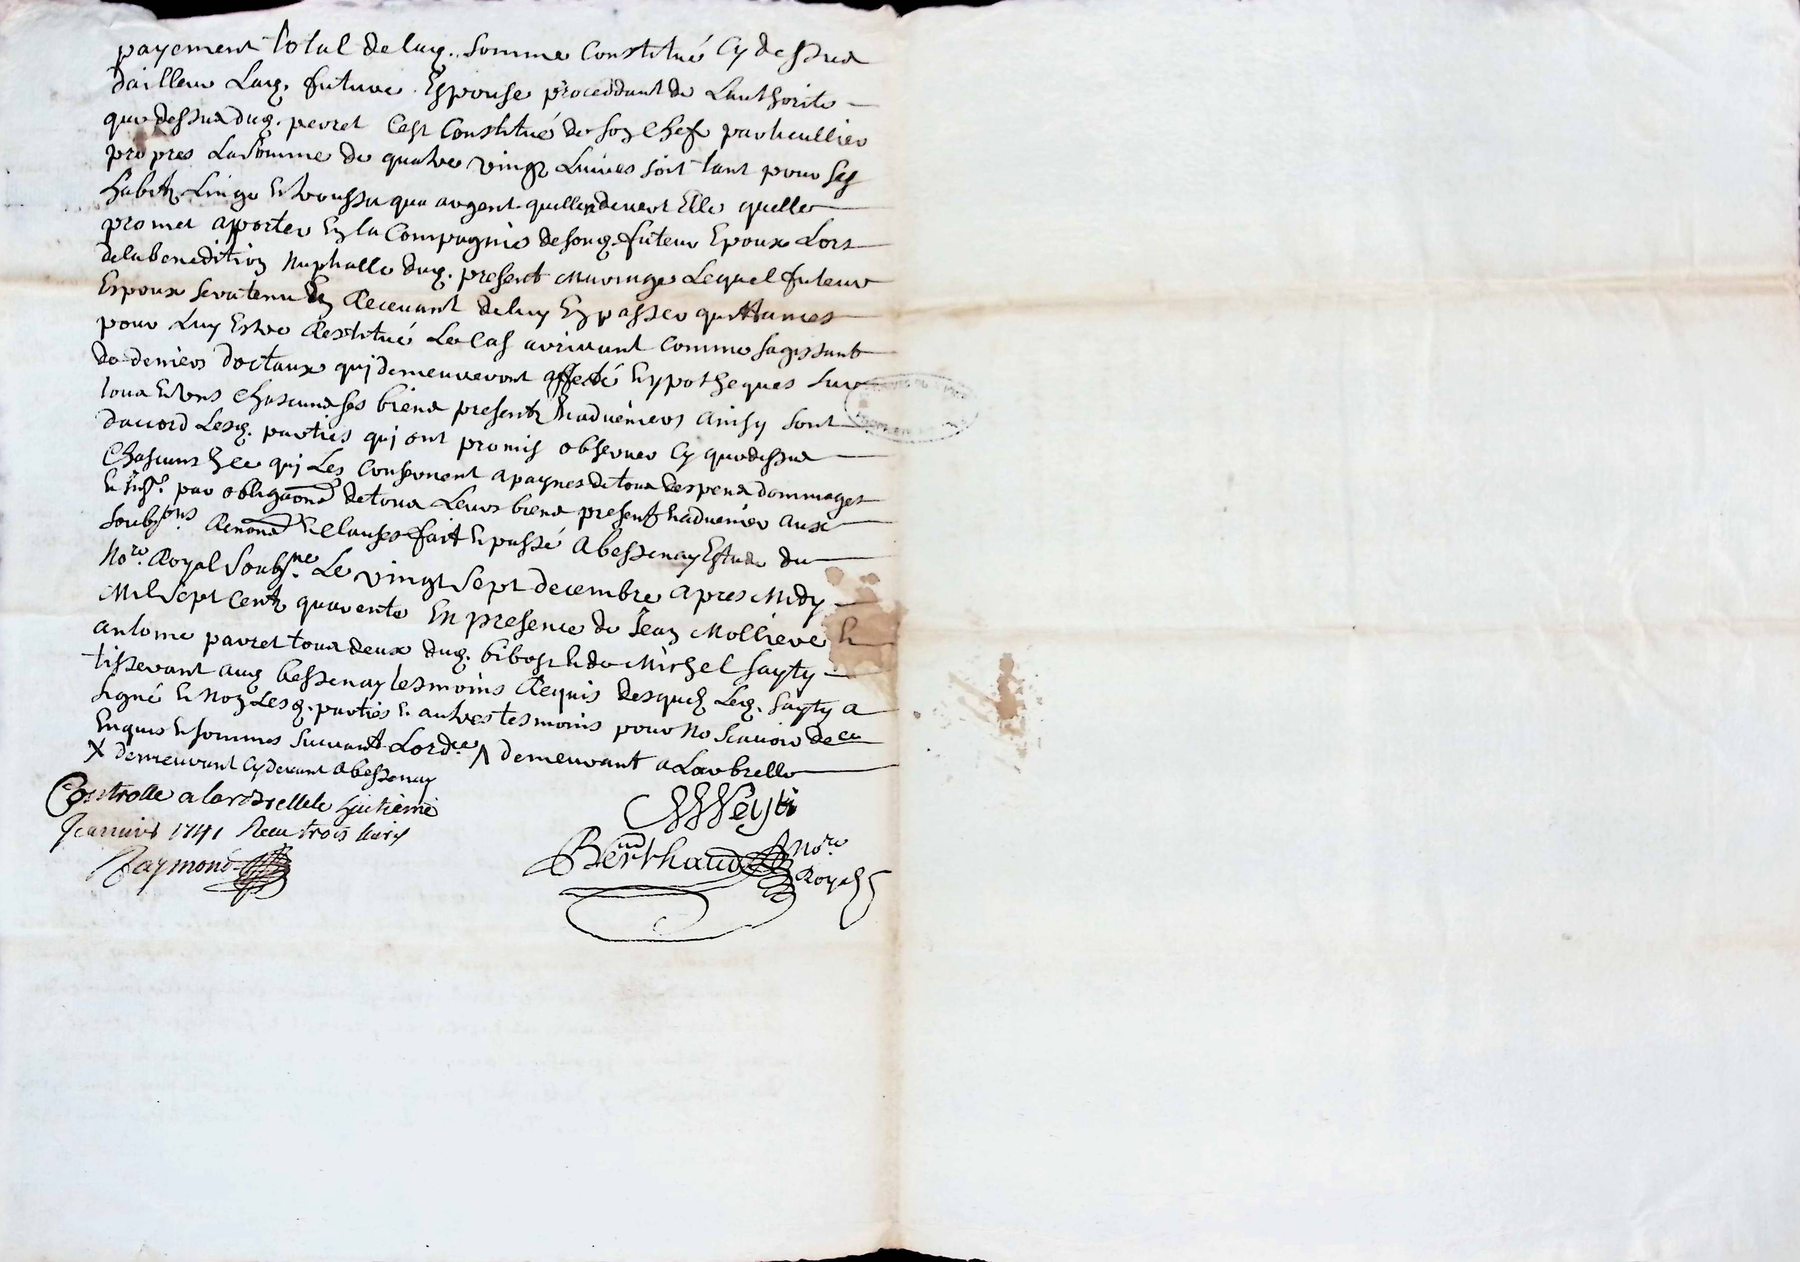 payement total de lad. somme Constitué Cy dessus
dailleur Lad. future Espouse procedant de Lauthorite
que dessus dud. pevret Cest Constitué de son Chef particullier
propres La somme de quatre vingt Livres soit tant pour ses
habitz Linge et trousse que argent quelle devers Elle quelle
promet apporter En la Compagnie de son d. futeur Epoux Lors
de la benedition Nuphalle dud. present Mariage Lequel futeur
Espoux sera tenu En Recevant de luy En passer quittances
pour Luy Estre Restitué Le Cas arrivant Comme sagissant
de deniers doctaux qui demeureront affecté et ypotheques sur
tous et uns Chascuns ses biens presentz et advenirs ainsy sont
daccord Lesd. parties qui ont promis observer Cy que dessus
Chascuns En ce qui Les Consernent a paynes de tous despens dommages
et Inst. par obligaons de tous Leurs biens presentz et advenir aux
soubons Renoned et Clauses fait et passé A bessenay Estude du
Nore. Royal soubsne. Le vingt sept decembre apres Midy
Mil sept Centz quarente En presence de Jean Molliere et
antoine pavret tous deux dud. bibost et de Michel sayty
tisserant aud bessenay tesmoins Requis desquelz Led. sayty a
signé et Non Lesd. parties et autres tesmoins pour No scavoir de ce
Enquis et sommes suivant Lordce. ꓥ demeurant a Larbrelle
X demeurant Cy devant a bessenay
Controlle a larbrelle le huitieme
Janvier 1741 Receu trois livres
Raymond
Seyti
Berthaud Nore
Royal